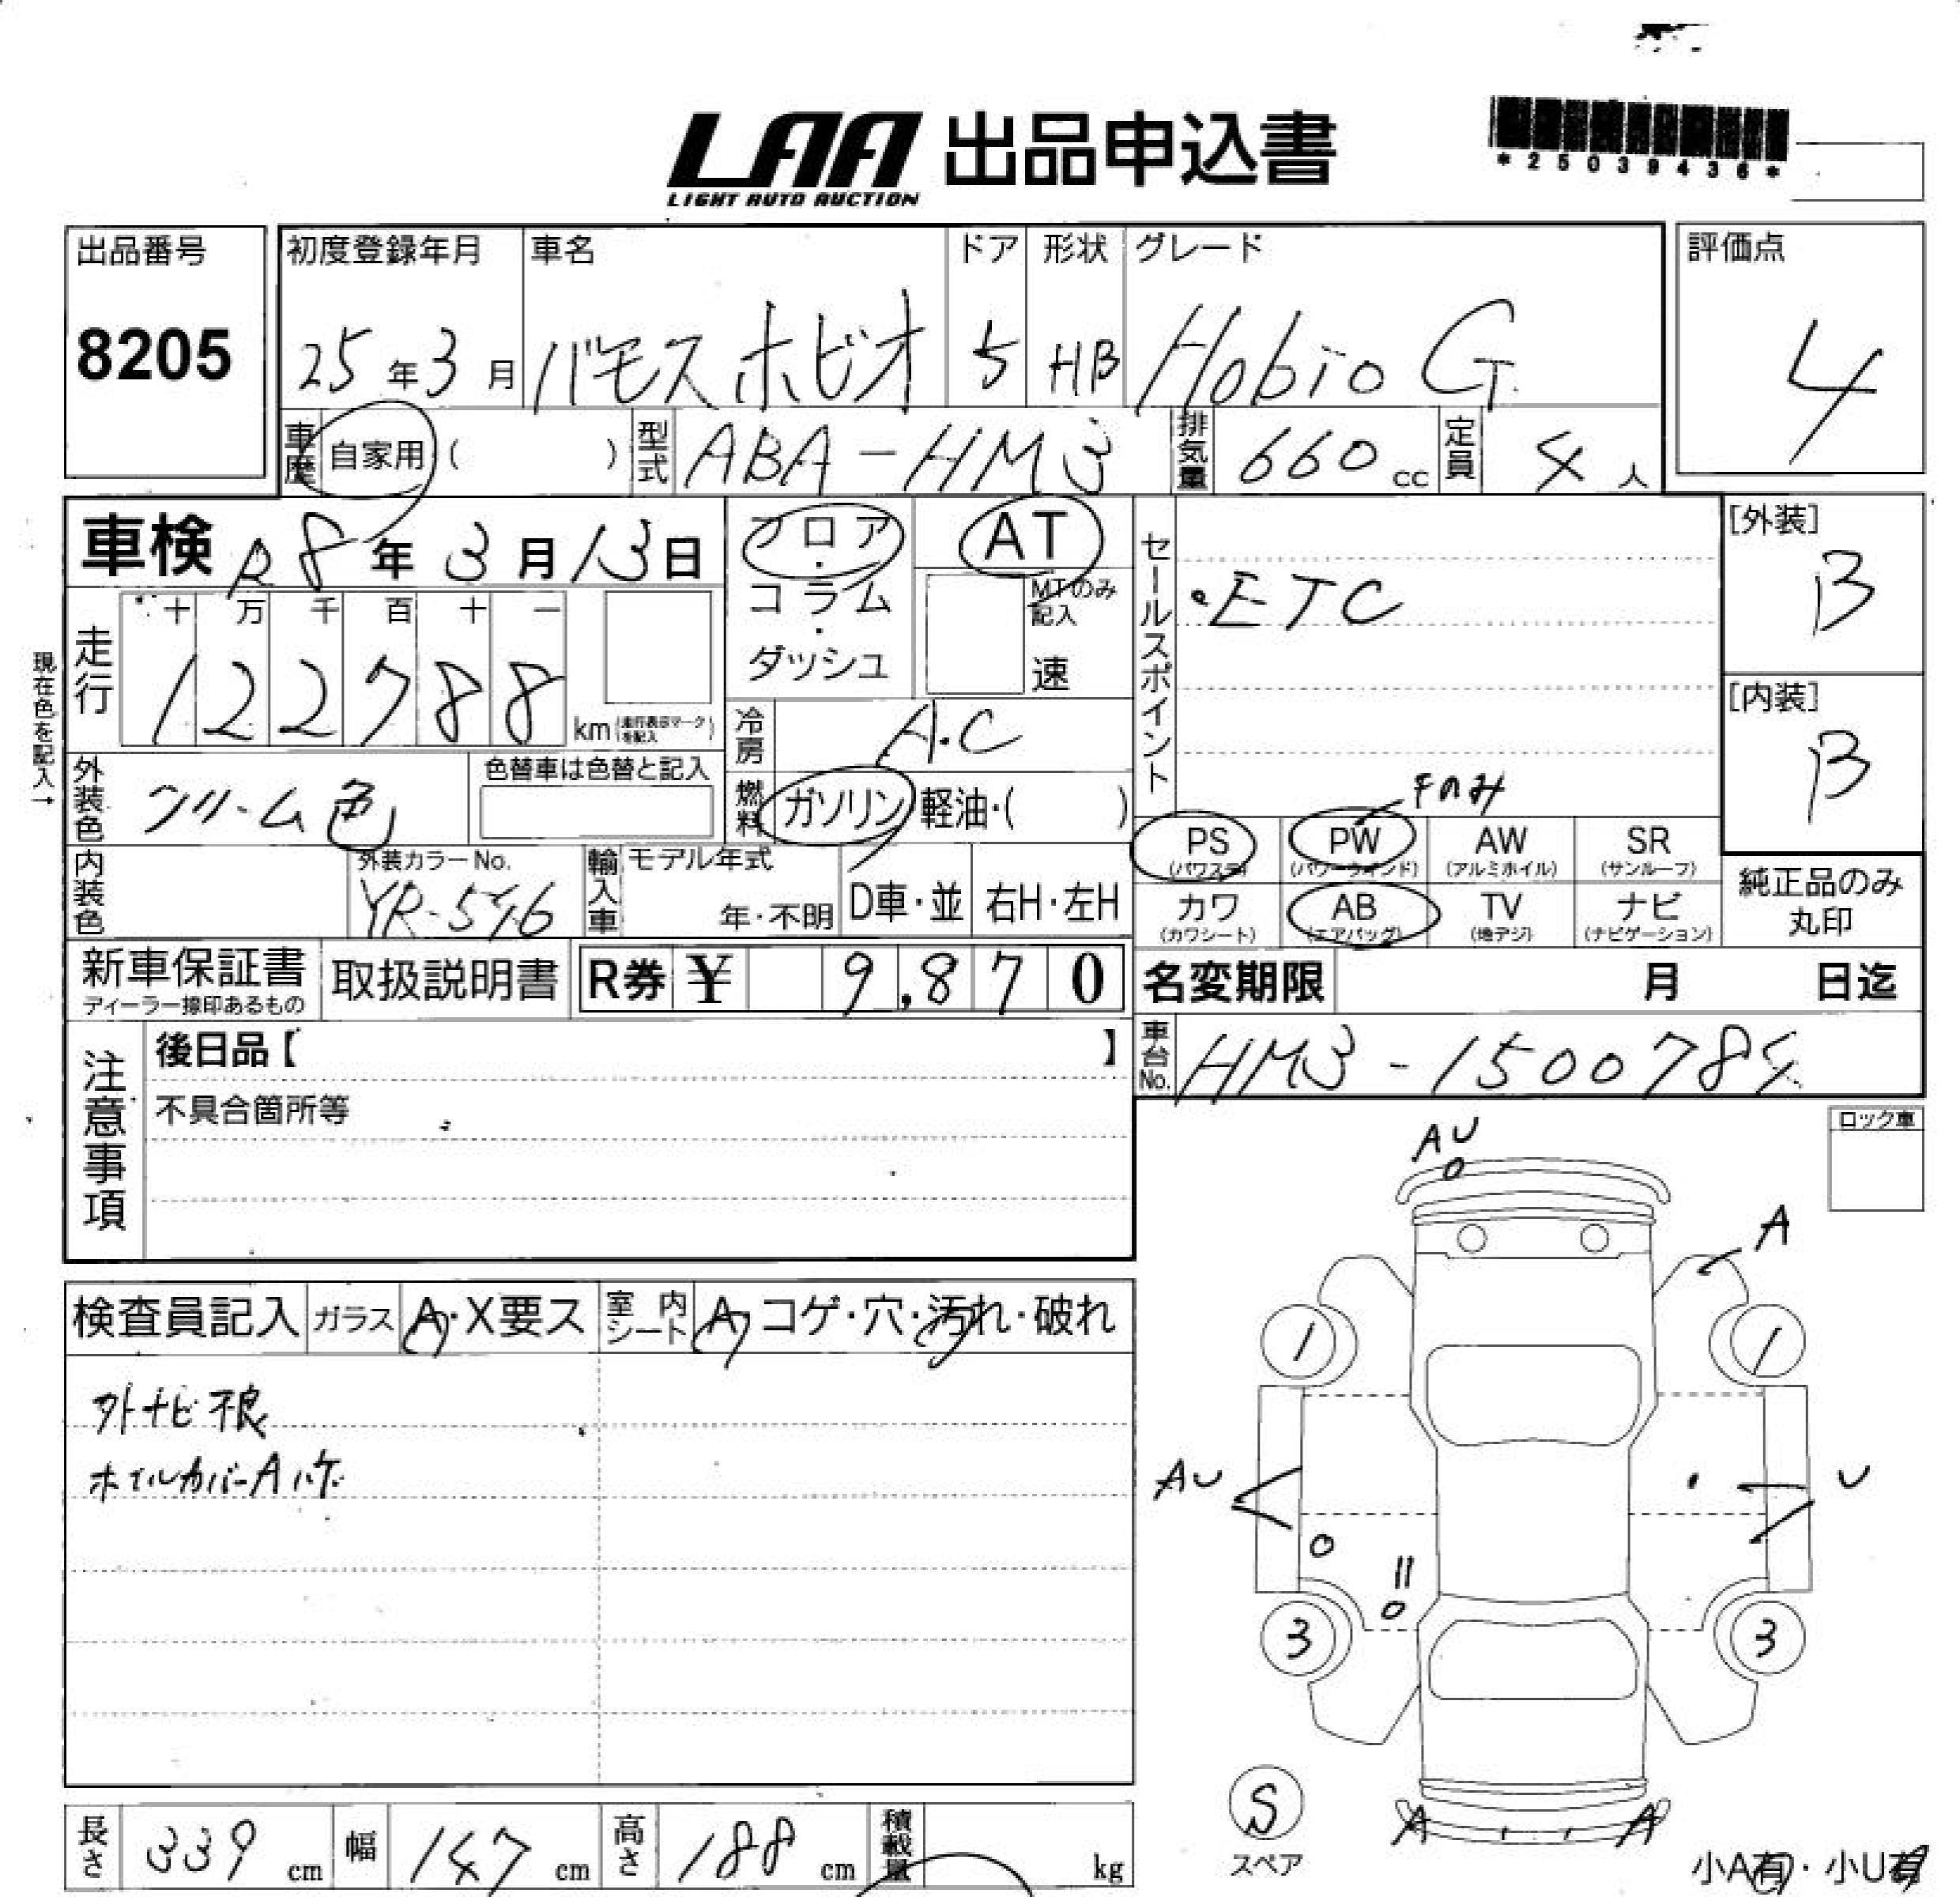 LAA 出品申込書
LIGHT AUTO AUCTION
*25039436*
出品番号 初度登録年月 車名 ドア 形状 グレード 評価点
8205 25年3月 バモスホビオ 5 HB Hobio G 4
車歴 自家用( ) 型式 ABA-HM3 排気量 660cc 定員 4人
車検 R8年3月13日 フロア・コラム・ダッシュ AT
MTのみ記入 速
セールスポイント
・ETC
[外装]
B
[内装]
B
現在色を記入→
走行 十 万 千 百 十 一
122788 km (走行表示マークを記入)
冷房 A.C
外装色 クリーム色 色替車は色替と記入
燃料 ガソリン・軽油・( )
Fのみ
PS (パワステ) PW (パワーウインド) AW (アルミホイル) SR (サンルーフ)
カワ (カワシート) AB (エアバッグ) TV (地デジ) ナビ (ナビゲーション)
純正品のみ丸印
内装色 外装カラーNo. YR-546 輸入車 モデル年式 年・不明 D車・並 右H・左H
新車保証書 ディーラー捺印あるもの 取扱説明書 R券 ¥ 9,870
名変期限 月 日迄
車台No. HM3-1500784
注意事項
後日品【 】
不具合箇所等
ロック車
AU
A
1 1
AU U
3 3
S
スペア
A A
小A有・小U有
検査員記入 ガラス A・X要ス 室内シート A・コゲ・穴・汚れ・破れ
外ナビ不良
ホイルカバーAハゲ
長さ 339cm 幅 147cm 高さ 188cm 積載量 kg